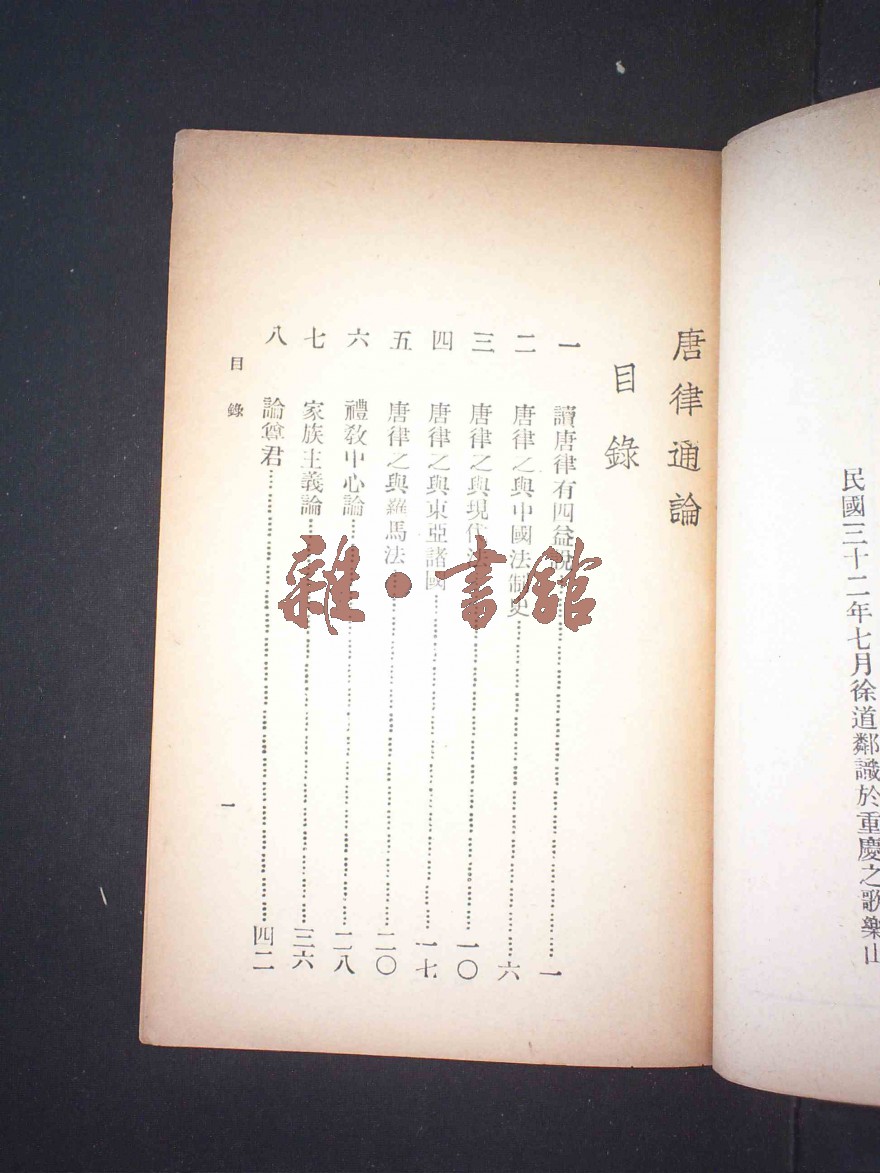 民國三十二年七月徐道鄰識於重慶之歌樂山
唐律通論
目錄
一 讀唐律有四益說……一
二 唐律之與中國法制史……六
三 唐律之與現代法……一〇
四 唐律之與東亞諸國……一七
五 唐律之與羅馬法……二〇
六 禮敎中心論……二八
七 家族主義論……三六
八 論尊君……四二
目錄
一
雜·書館